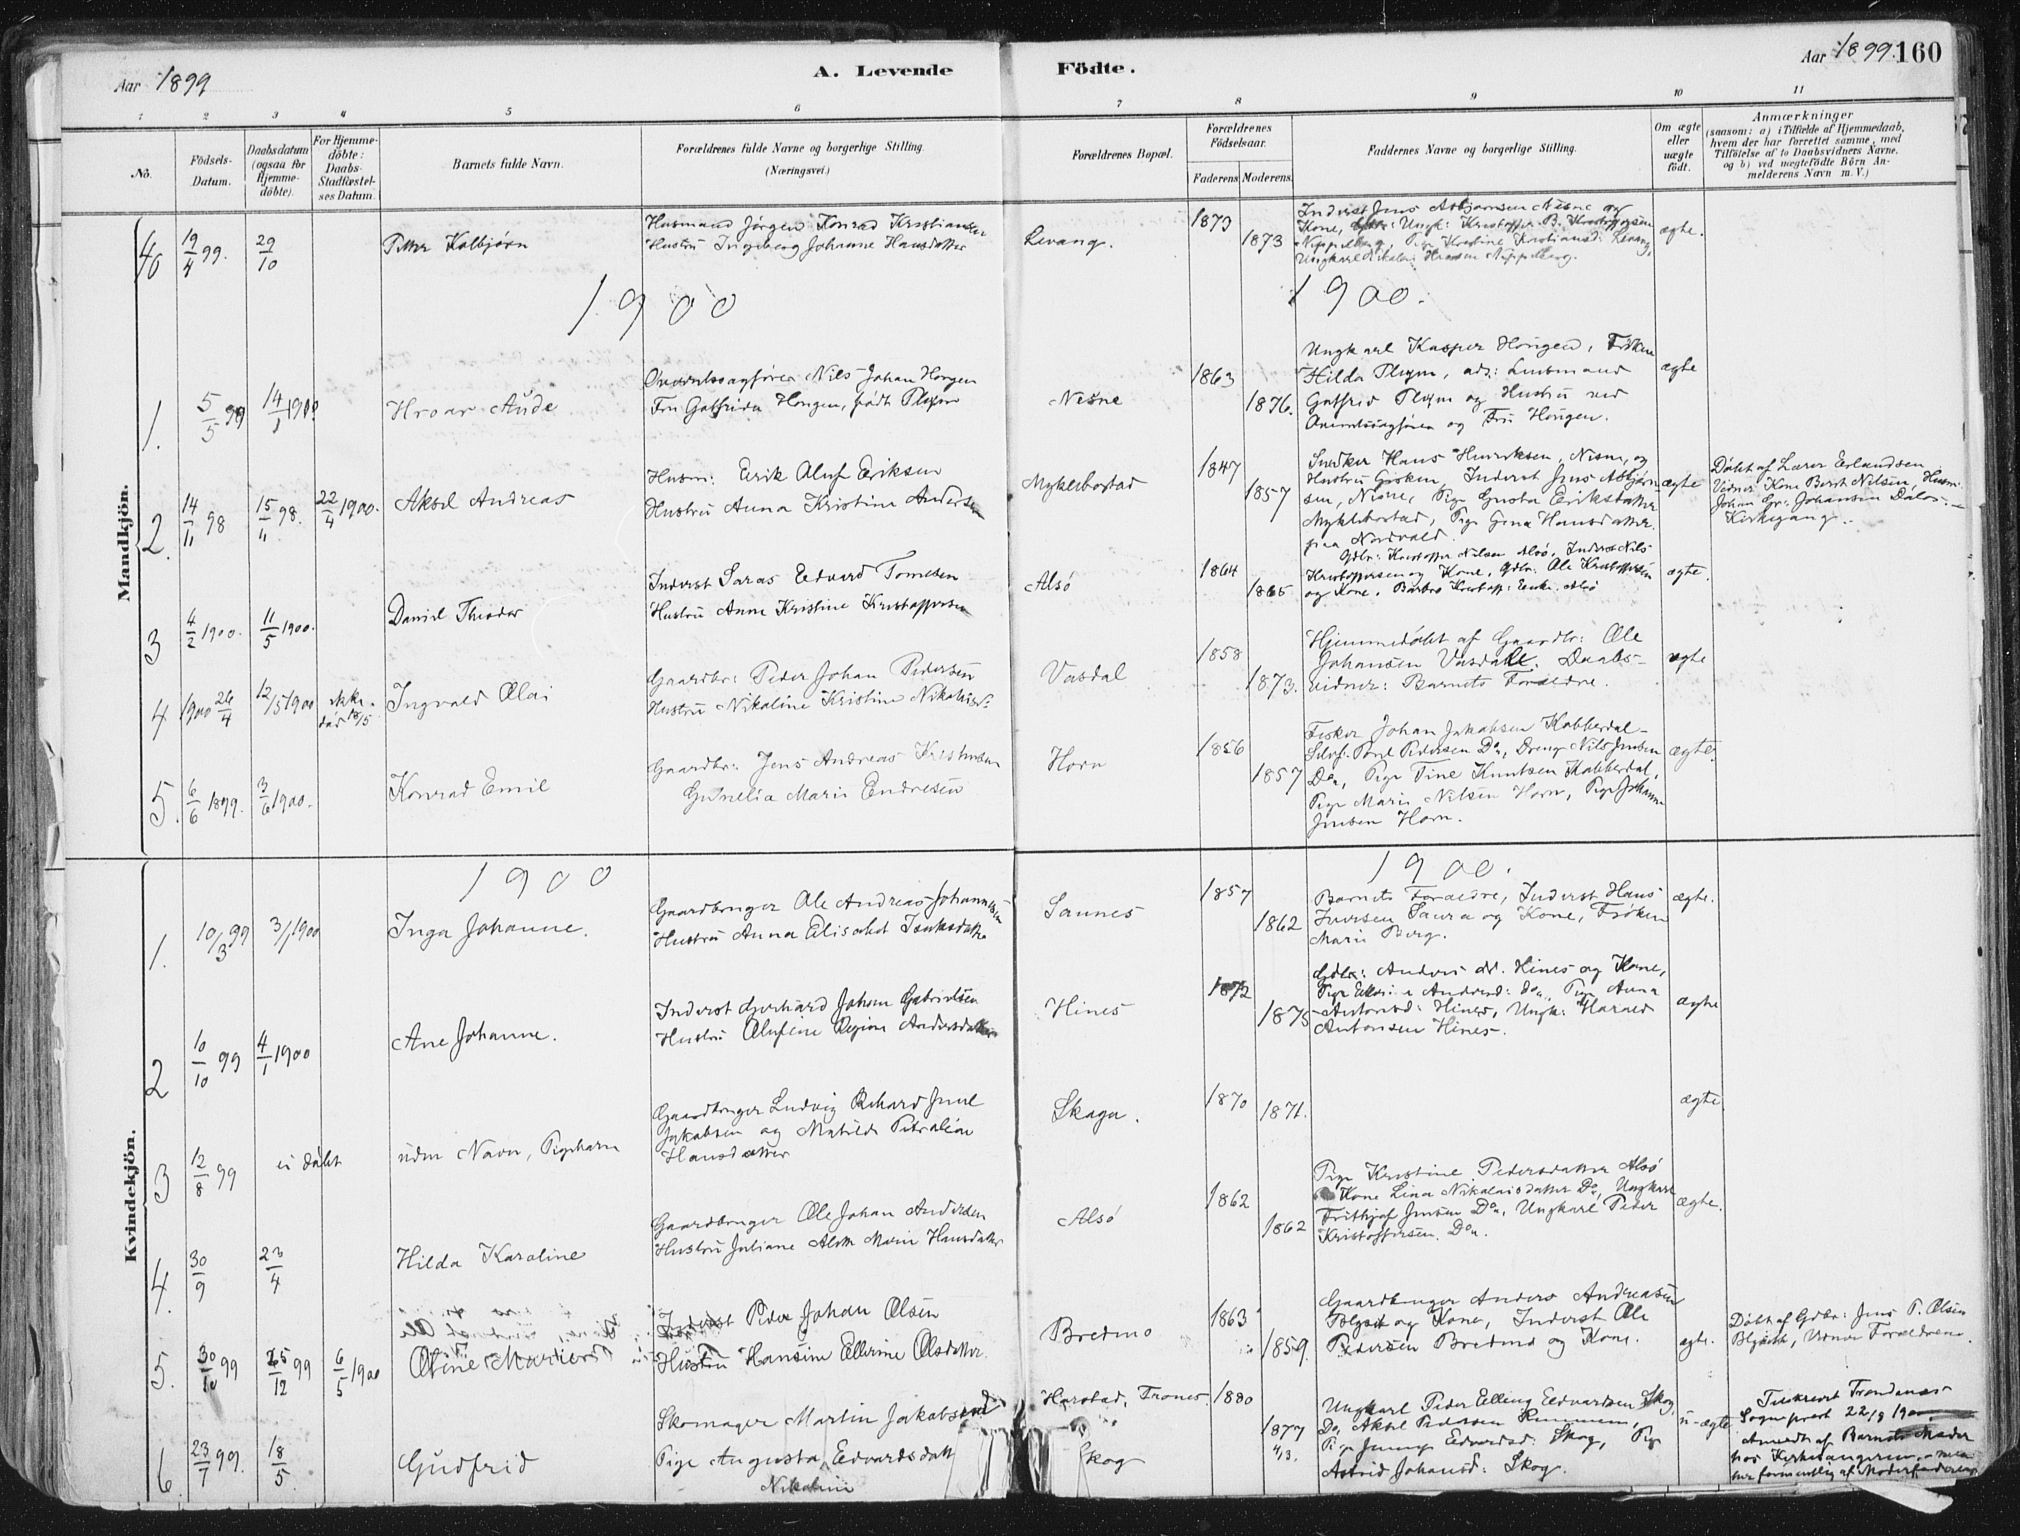 Aar 1899
A. Levende Födte.
Aar 1899. 160
1 2 3 4 5 6 7 8 9 10 11
No.
Födsels-Datum.
Daabsdatum (ogsaa for Hjemme-döbte).
For Hjemme-döbte: Daabs-Stadfæstel-ses Datum.
Barnets fulde Navn.
Forældrenes fulde Navne og borgerlige Stilling.
(Næringsvei.)
Forældrenes Bopæl.
Forældrenes Födselsaar.
Faderens Moderens.
Faddernes Navne og borgerlige Stilling.
Om ægte eller uægte födt.
Anmærkninger
(saasom: a) i Tilfælde af Hjemmedaab, hvem der har forrettet samme, med Tilföielse af to Daabsvidners Navne. og b) ved uægtefödte Börn An-melderens Navn m. V.)
Mandkjön.
40 19/4 99. 29/10 Petter Kolbjørn
Husmand Jörgen Konrad Kristiansen
Hustru Ingeborg Johanne Hansdatter
Levang. 1873 1873
Inderst Jens Asbjørnsen Nesne og
Kone, Ungk: Kristoffer B. Kristoffersen
ægte.
1900 1900.
1. 5/5 99 14/1 1900 Hroar Aude
Overretssagförer Nils Johan Horgen
Nesne 1863 1876.
Ungkarl Kasper Hongen, Fröken
Hilda Plym, adr: Lensmand
Gotfrid Plym og Hustru ved
Overretssagförer og Fru Hongen.
ægte
2. 14/11 98 15/11 98. 22/4 1900. Aksel Andreas
Husm: Erik Oluf Eriksen
Hustru Anna Kristine Andersen
Myklebostad 1847 1857
Snedker Hans Henriksen, Nesne, og
Inderst Jens Asbjørn-
sen, Nesne, Pige Gusta Eriksdatter
Myklebostad, Pige Gina Hansdatter
paa Nordvald.
ægte
Döbt af Lærer Erlandsen
Vidner Kone Berit Nilsen, Husm.
Johan Gr. Johansen Dalos-
Kirkegang.
3 4/2 1900. 11/5 1900. Daniel Theodor
Inderst Saras Edvard Tomesen
Hustru Anne Kristine Kristoffersen
Alsö 1864 1865
Gdbr: Kristoffer Nilsen Alsö, Inderst Nils
Kristoffersen og Kone, Gdbr: Ole Kristoffersen
og Kone, Barbro Kristoff: Enke, Alsö
ægte.
4 1900 26/4 12/5 1900 Ingvald Olai
Gaardbr: Peder Johan Pedersen
Hustru Nikoline Kristine Nikolaisd:
Vasdal 1858 1873.
Hjemmedöbt af Gaardbr: Ole
Johansen Vasdal. Daabs-
vidner: Barnets Forældre.
ægte
5. 6/6 1899. 3/6 1900. Konrad Emil
Gaardbr: Jens Andreas Kristensen
Gunelia Marie Endresen
Horn 1856 1857
Fisker Johan Jakobsen Kobberdal-
Pedersen Do, Dreng Nils Jensen
Do, Pige Tine Knutsen Kobberdal,
Pige Marie Nilsen Horn, Pige Johanne
Jensen Horn.
ægte.
Kvindekjön.
1900 1900.
1. 10/3 99 3/1 1900 Inga Johanne.
Gaardbruger Ole Andreas Johannesen
Hustru Anna Elisabet Isaksdatter
Sannes 1857 1862
Barnets Forældre, Inderst Hans
Iversen Saura og Kone, Fröken
Marie Berg.
ægte.
2 10/10 99 4/1 1900 Ane Johanne.
Inderst Gerhard Johan Gabrielsen
Hustru Olufine Regine Andersdatter
Hines 1872 1875
Gdbr: Anders A. Hines og Kone,
Andersd: Do, Pige Anna
Antonsd: Hines, Ungk: Harald
Antonsen Hines.
ægte
3 12/8 99 ei döbt uden Navn, Pigebarn
Gaardbruger Ludvig Rikard Juul
Jakobsen og Matilde Petraline
Hansdatter
Skaga. 1870 1871.
ægte.
4. 30/9 23/4 Hilda Karoline
Gaardbruger Ole Johan Andersen
Hustru Juliane Marie Hansdatter
Alsö 1862 1862
Pige Kristine Pedersdatter Alsö
Kone Lina Nikolaisdatter Do, Ungkarl
Frithjof Jensen Do, Ungkarl Peder
Kristoffersen Do.
ægte.
5. 30/10 99 25/12 99 6/5 1900
Inderst Peder Johan Olsen
Hustru Hansine Ellerine Olsdatter.
Bredmo 1863 1859.
Gaardbruger Anders Andreasen
og Kone, Inderst Ole
Pedersen Bredmo og Kone.
ægte.
Döbt af Gdbr: Jens P. Olsen
Vidner Forældrene.
6. 23/7 99. 18/5 Gudfrid
Skomager Martin Jakobsen
Pige Augusta Edvardsdatt
Nikoline
Harstad, Trones. 1880
Skog 1877 4/3.
Ungkarl Peder Elling Edvardsen Skog,
Do Aksel Pedersen
Pige Jenny Edvardsd: Skog, Pige
Astrid Johansd: Skog.
u-ægte
Trondenes
Sogneprest 22/9 1900.
Anmeldt af Barnets Moder